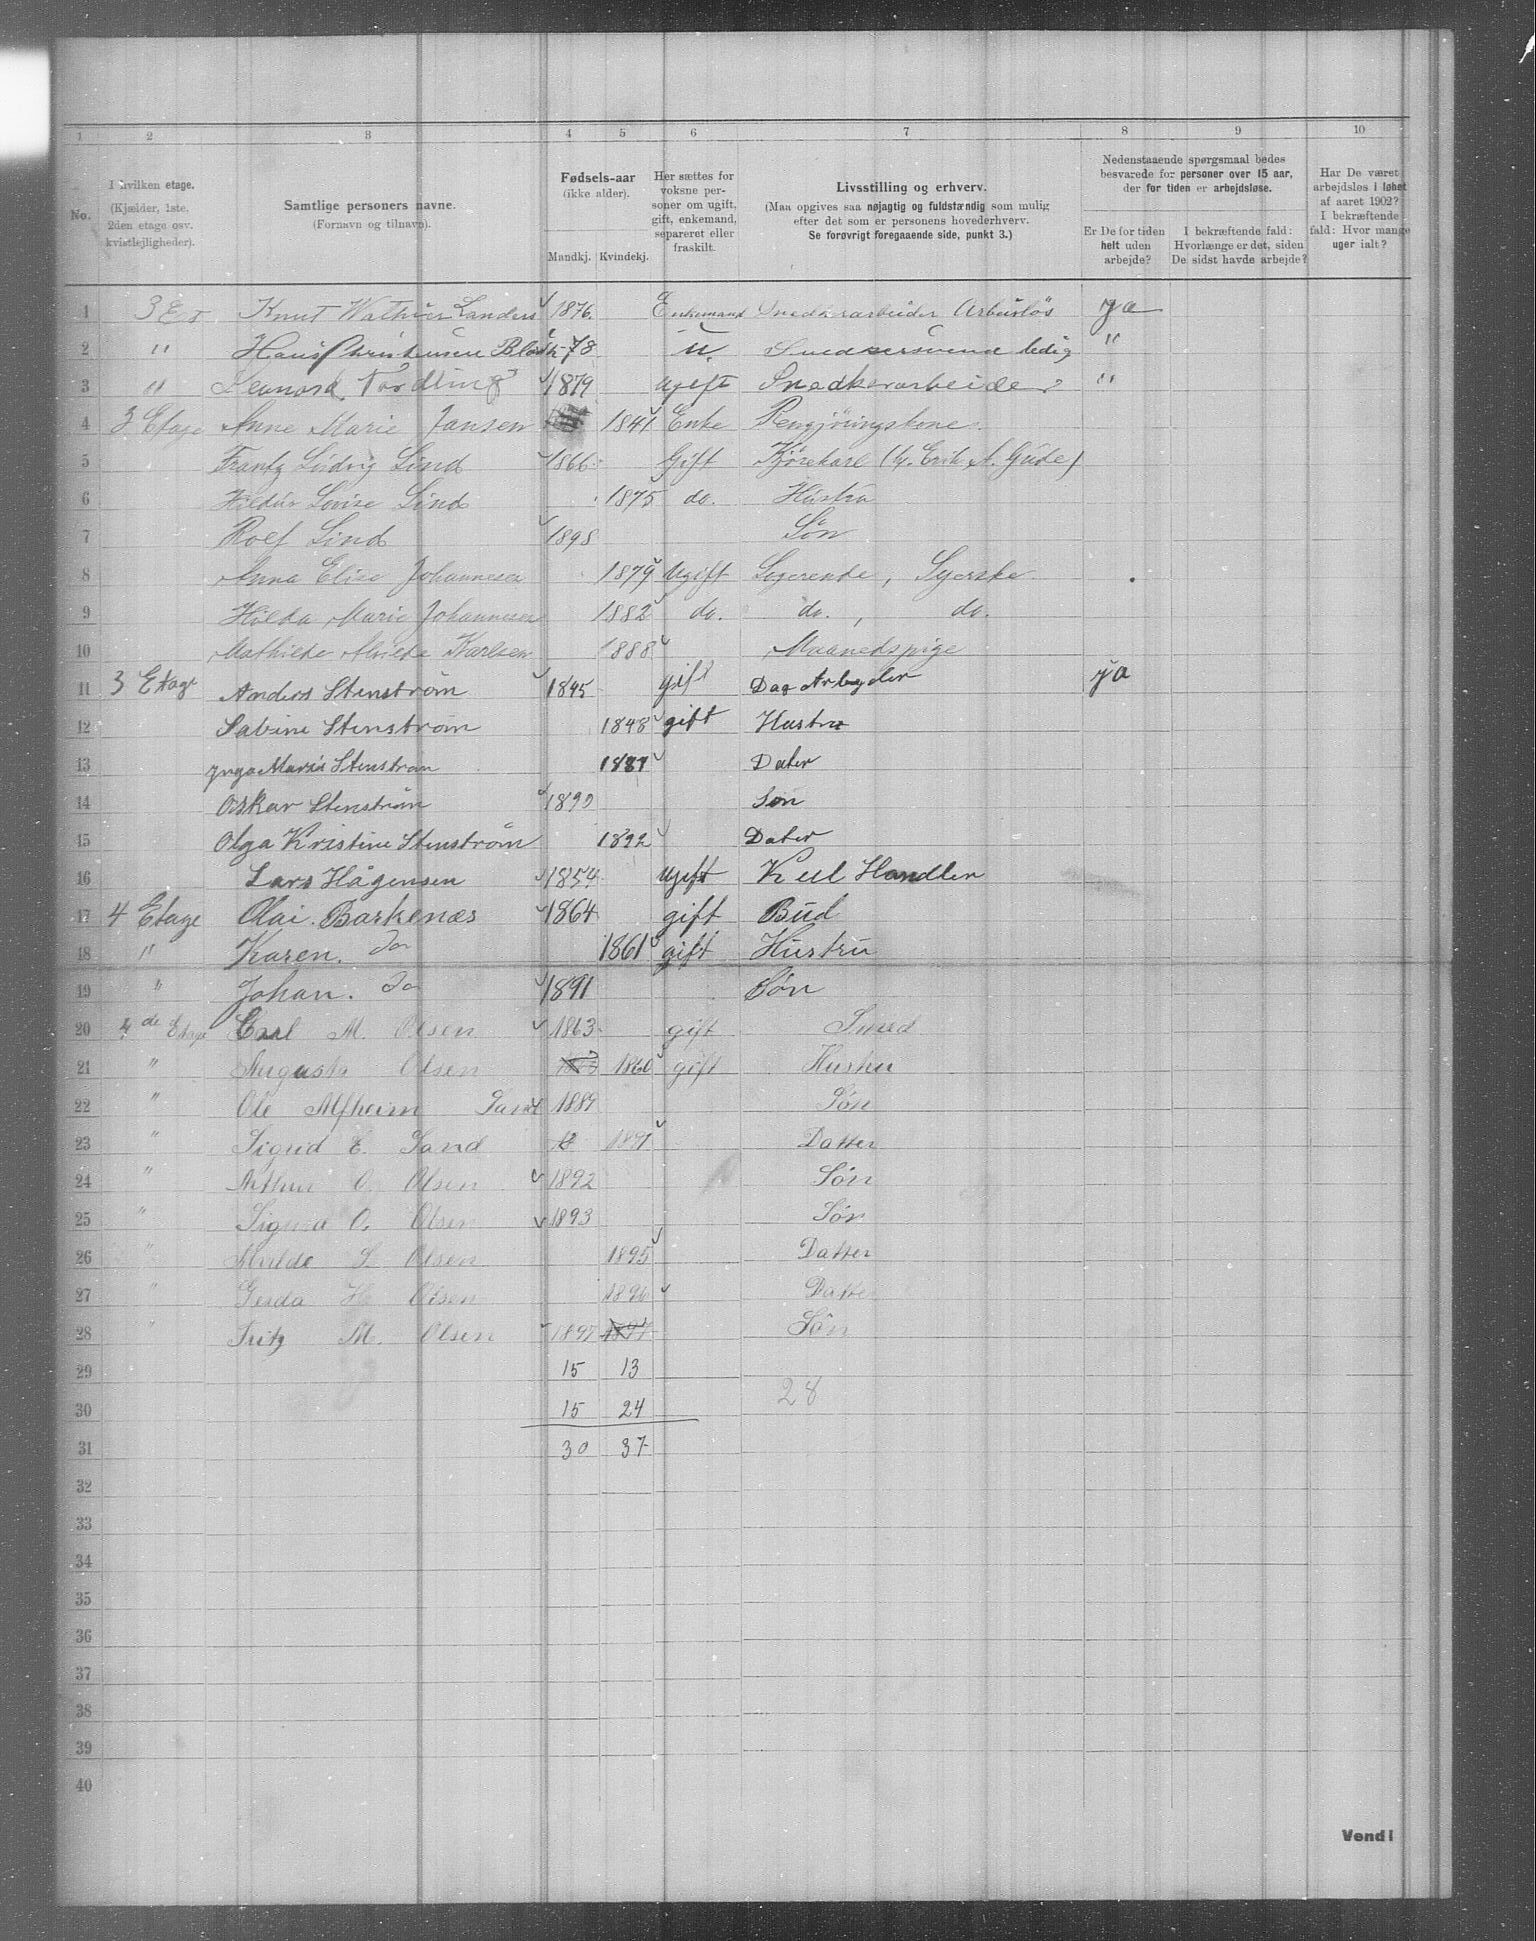 1 2 3 4 5 6 7 8 9 10
No.
I hvilken etage.
(Kjælder, 1ste.
2den etage osv.
kvistlejligheder).
Samtlige personers navne.
(Fornavn og tilnavn).
Fødsels-aar
(ikke alder).
Mandkj. Kvindekj.
Her sættes for
voksne per-
soner om ugift,
gift, enkemand,
separeret eller
fraskilt.
Livsstilling og erhverv.
(Maa opgives saa nøjagtig og fuldstændig som mulig
efter det som er personens hovederhverv.
Se forøvrigt foregaaende side, punkt 3.)
Nedenstaaende spørgsmaal bedes
besvarede for personer over 15 aar,
der for tiden er arbejdsløse.
Er De for tiden
helt uden
arbejde?
I bekræftende fald:
Hvorlænge er det, siden
De sidst havde arbejde?
Har De været
arbejdsløs i løbet
af aaret 1902?
I bekræftende
fald: Hvor mange
uger ialt?
1 3 Et Knut Landers 1876 Enkemand Snedkerarbeider Arbeisløs ja
2 " Hans 78 u. Snedkersvend ledig "
3 " Nordling 1879 Ugift Snedkerarbeider "
4 3 Etage Anne Marie Jansen 1841 Enke Rengjöringskone.
5 Frantz Ludvig Lind 1866 Gift Kjörekarl (hr. Erik A. Gude)
6 Hildur Lovise Lind 1875 do. Hustru
7 Rolf Lind 1898 Sön
8 Anna Elise Johannesen 1879 Ugift Logerende, Syerske
9 Hilda Marie Johannesen 1882 do. do. , do.
10 Mathilde Karlsen 1888 Maanedspige
11 3 Etage Anders Stenström 1845 gift Dag Arbejder ja
12 Sabine Stenström 1848 gift Hustru
13 Ynga Maria Stenström 1887 Dater
14 Oskar Stenström 1890 Sön
15 Olga Kristine Stenström 1892 Dater
16 Lars Hågensen 1854 Ugift Kul Handler
17 4 Etage Olai Barkenæs 1864 gift Bud
18 " Karen. Do 1861 gift Hustru
19 " Johan. Do 1891 Sön
20 4de Etage Carl M. Olsen 1863 gift Smed
21 " Augusta Olsen 1860 gift Hustru
22 " Ole Alfheim Sand 1889 Sön
23 " Sigrid E. Sand 1891 Datter
24 " Arthur O. Olsen 1892 Sön
25 " Sigurd O. Olsen 1893 Sön
26 " S. Olsen 1895 Datter
27 " Gerda H Olsen 1896 Datter
28 " Fritz M. Olsen 1897 1897 Sön
29 15 13
28
30 15 24
31 30 37
32
33
34
35
36
37
38
39
40
Vend!